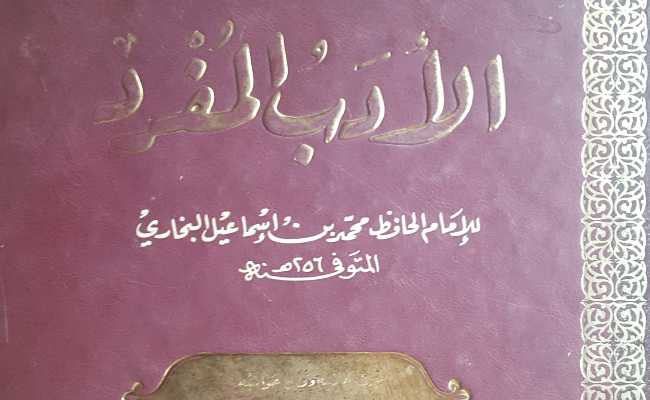 الأدب المفرد
للإمام الحافظ محمد بن إسماعيل البخاري
المتوفى سنة ٢٥٦هـ